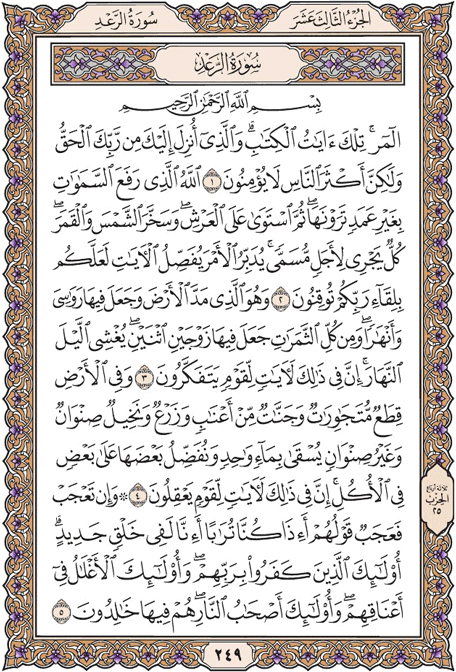 الجزء الثالث عشر
سورة الرعد
سورة الرعد
بسم الله الرحمن الرحيم
الٓمٓرۚ تِلْكَ ءَايَٰتُ ٱلْكِتَٰبِۗ وَٱلَّذِىٓ أُنزِلَ إِلَيْكَ مِن رَّبِّكَ ٱلْحَقُّ
وَلَٰكِنَّ أَكْثَرَ ٱلنَّاسِ لَا يُؤْمِنُونَ ١ ٱللَّهُ ٱلَّذِى رَفَعَ ٱلسَّمَٰوَٰتِ
بِغَيْرِ عَمَدٍ تَرَوْنَهَاۖ ثُمَّ ٱسْتَوَىٰ عَلَى ٱلْعَرْشِۖ وَسَخَّرَ ٱلشَّمْسَ وَٱلْقَمَرَۖ
كُلٌّ يَجْرِى لِأَجَلٍ مُّسَمًّىۚ يُدَبِّرُ ٱلْأَمْرَ يُفَصِّلُ ٱلْءَايَٰتِ لَعَلَّكُم
بِلِقَآءِ رَبِّكُمْ تُوقِنُونَ ٢ وَهُوَ ٱلَّذِى مَدَّ ٱلْأَرْضَ وَجَعَلَ فِيهَا رَوَٰسِىَ
وَأَنْهَٰرًاۖ وَمِن كُلِّ ٱلثَّمَرَٰتِ جَعَلَ فِيهَا زَوْجَيْنِ ٱثْنَيْنِۖ يُغْشِى ٱلَّيْلَ
ٱلنَّهَارَۚ إِنَّ فِى ذَٰلِكَ لَءَايَٰتٍ لِّقَوْمٍ يَتَفَكَّرُونَ ٣ وَفِى ٱلْأَرْضِ
قِطَعٌ مُّتَجَٰوِرَٰتٌ وَجَنَّٰتٌ مِّنْ أَعْنَٰبٍ وَزَرْعٌ وَنَخِيلٌ صِنْوَانٌ
وَغَيْرُ صِنْوَانٍ يُسْقَىٰ بِمَآءٍ وَٰحِدٍ وَنُفَضِّلُ بَعْضَهَا عَلَىٰ بَعْضٍ
فِى ٱلْأُكُلِۚ إِنَّ فِى ذَٰلِكَ لَءَايَٰتٍ لِّقَوْمٍ يَعْقِلُونَ ٤ ۞ وَإِن تَعْجَبْ
فَعَجَبٌ قَوْلُهُمْ أَءِذَا كُنَّا تُرَٰبًا أَءِنَّا لَفِى خَلْقٍ جَدِيدٍۗ
أُو۟لَٰٓئِكَ ٱلَّذِينَ كَفَرُوا۟ بِرَبِّهِمْۖ وَأُو۟لَٰٓئِكَ ٱلْأَغْلَٰلُ فِىٓ
أَعْنَاقِهِمْۖ وَأُو۟لَٰٓئِكَ أَصْحَٰبُ ٱلنَّارِۖ هُمْ فِيهَا خَٰلِدُونَ ٥
ثلاثة أرباع
الحزب
٢٥
٢٤٩